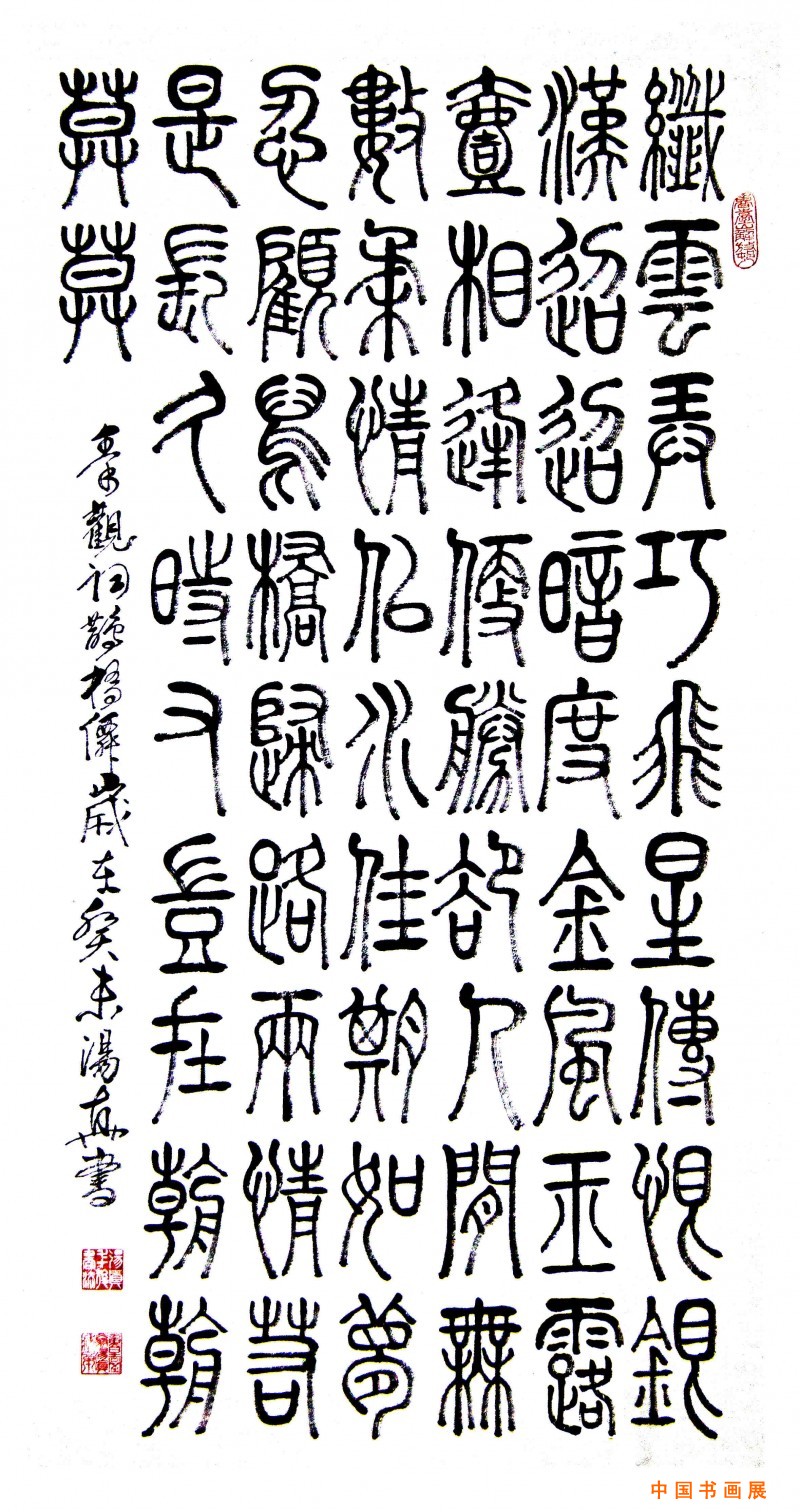 纖雲弄巧飛星傳恨銀
漢迢迢暗度金風玉露
壹相逢便勝卻人間無
數柔情佀水佳期如夢
忍顧舄橋歸路兩情若
是長久時又豈在朝朝
莫莫
秦觀詞鵲橋僊歲在癸未湯書
中国书画展